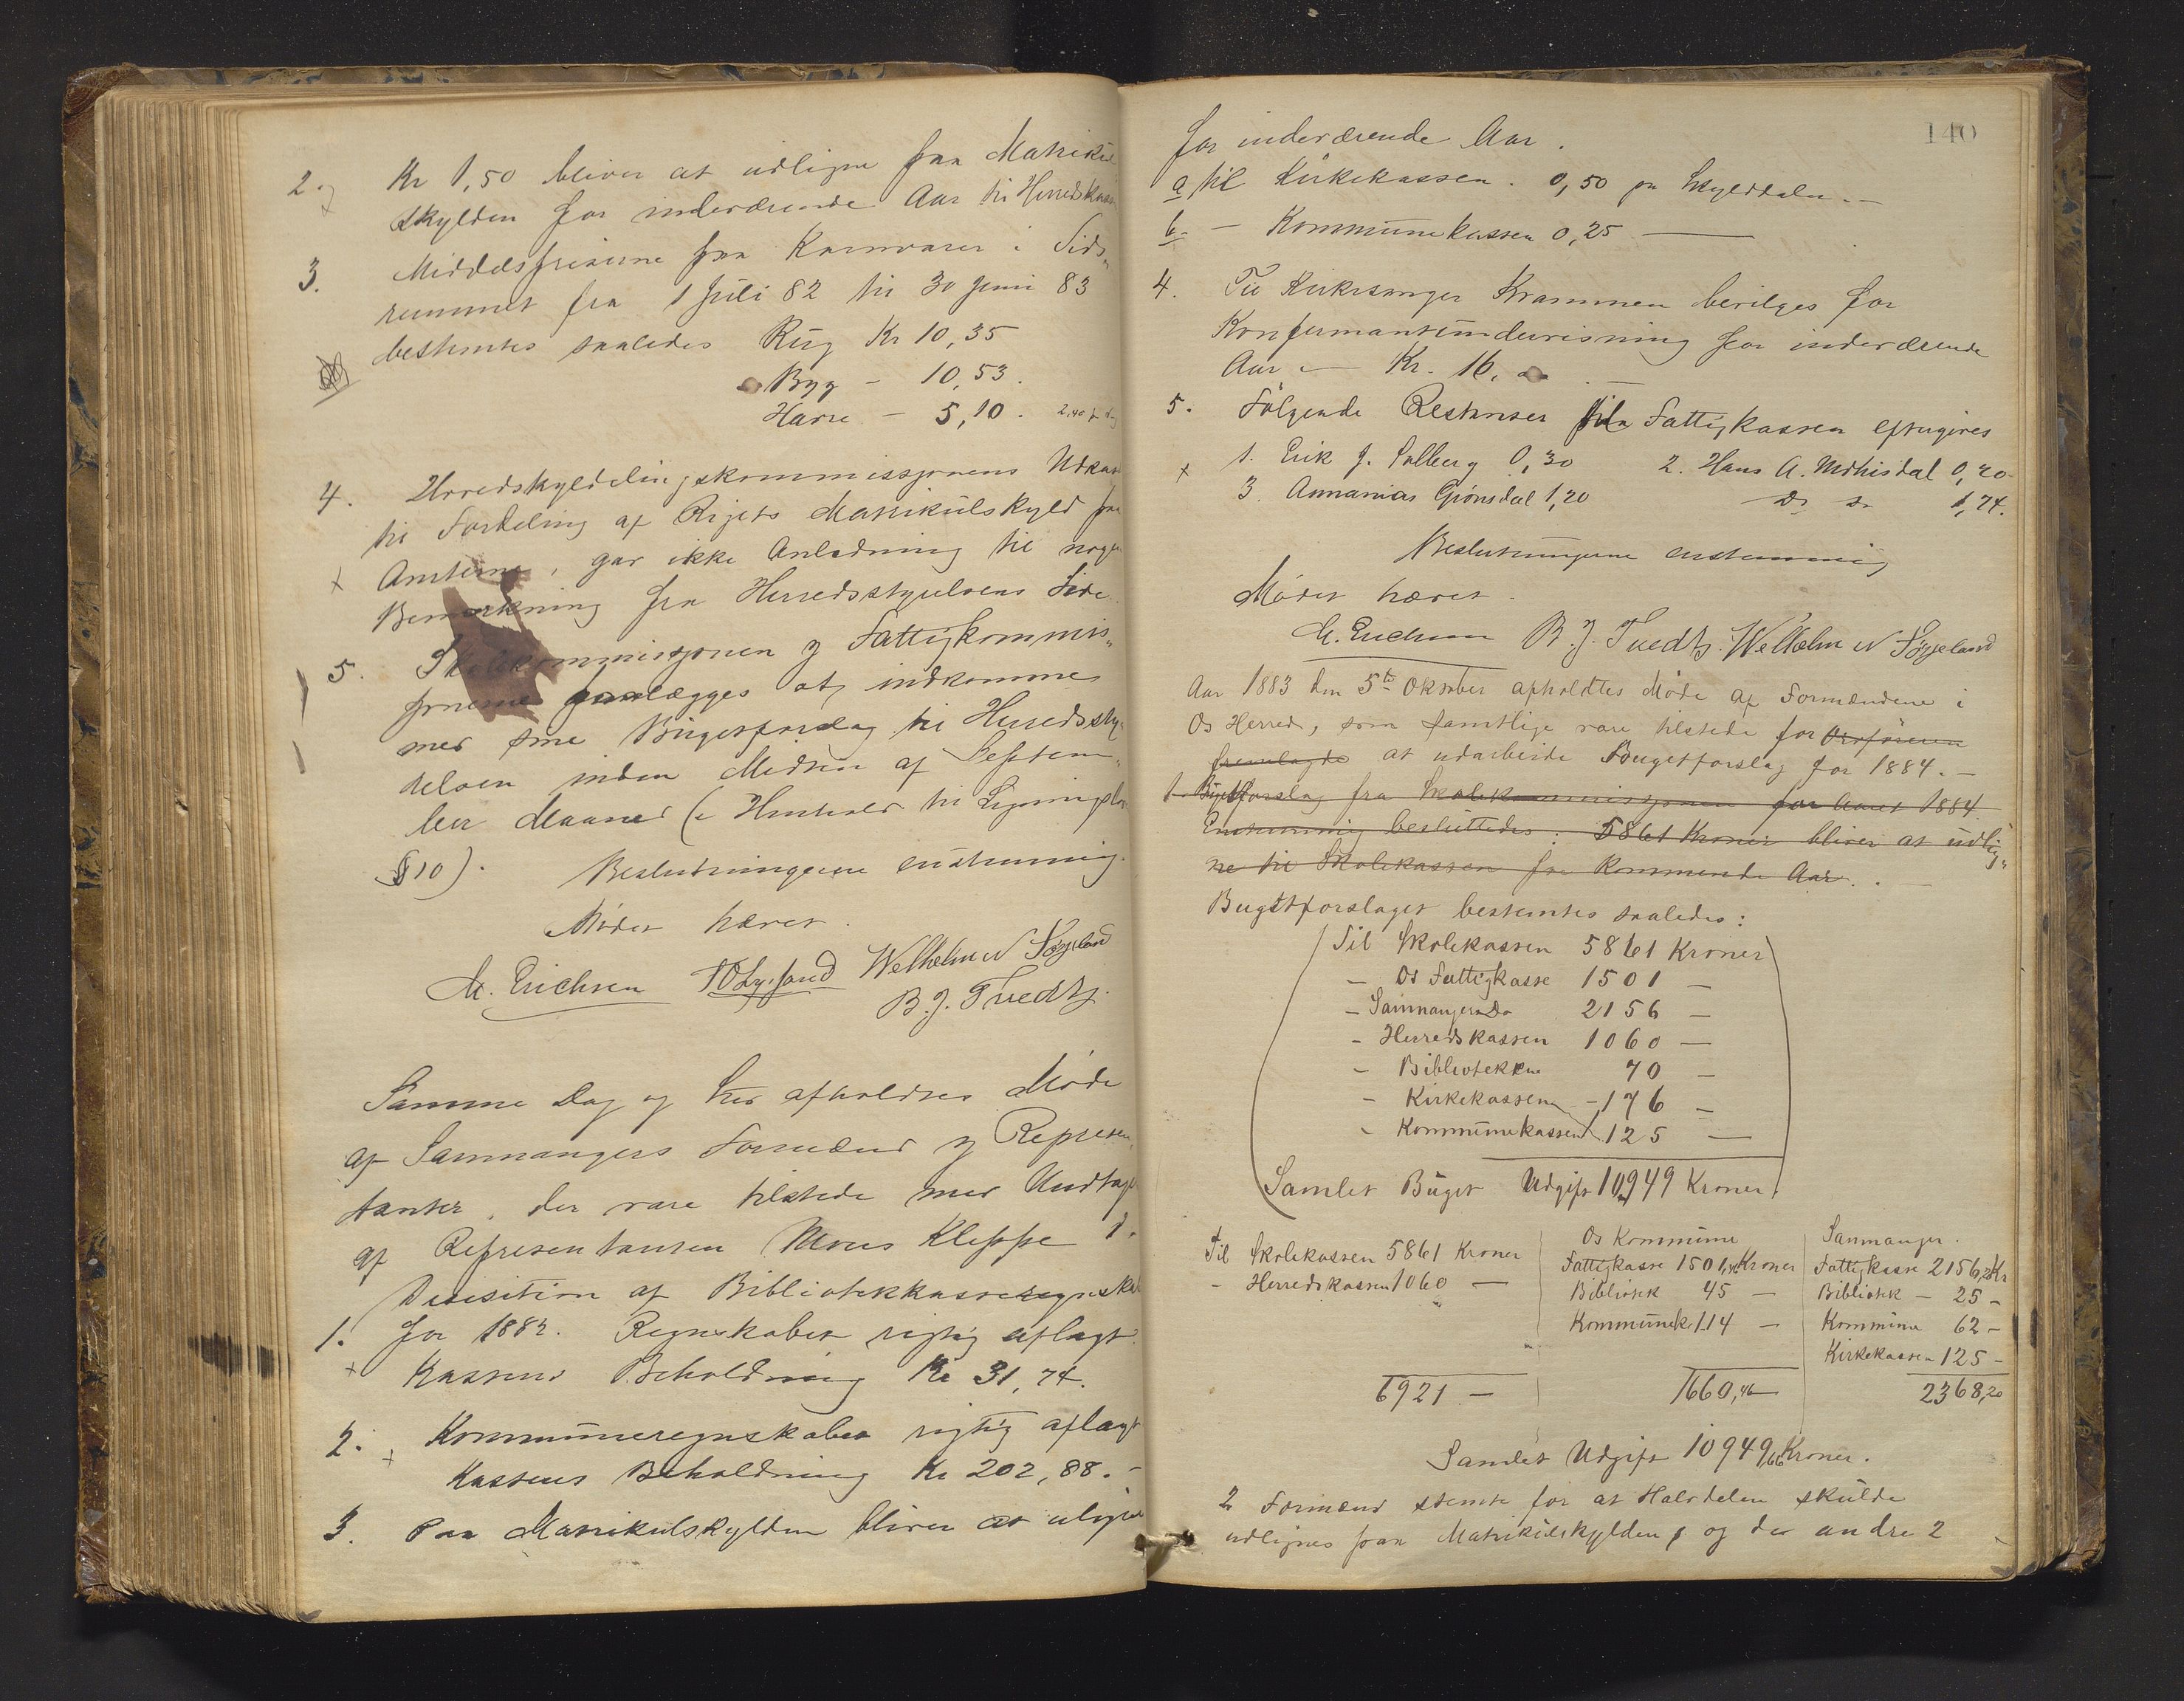 2. Kr 1,50 bliver at udligne paa Matrikul
skylden for inderværende Aar til Herredskassen
3. Middelspriserne paa Kornvarer i Tids„
rummet fra 1 Juli 82 til 30 Juni 83
bestemtes saaledes Rug Kr 10,35
Byg – 10,53.
Havre – 5,10.
4. Herredskyldelingskommissjonens Udkast
til Fordeling af Rigets Matrikulskyld paa
Amterne, gav ikke Anledning til nogen
Bemærkning fra Herredsstyrelsens Side.
5. Skolekommissjonen og Fattigkommis„
sjonerne paalægges at indkomme
med sine Bugetforslag til Herredssty„
relsen inden Midten af Septem„
ber Maaned (i Henhold til Ligningslov
§ 10). Beslutningerne enstemmig.
Mødet hævet.
M. Erichsen TOLysefand Welhelm N Søfteland
B. J. Tvedt
Samme Dag og Sted afholdtes Møde
af Samnangers Formænd og Represen„
tanter, der vare tilstede med Undtagelse
af Representanten Mons Kleppe
Desisition af Bibliotekkasseregnskab
1. for 1882. Regnskabet rigtig aflagt.
Kassens Beholdning Kr 31,74.
2. Kommuneregnskabet rigtig aflagt
Kassens Beholdning Kr 202,88.–
3. Paa Matrikulskylden bliver at uligne
140
for inderværende Aar.
a til Kirkekassen. 0,50 pr Skylddaler.–
b. – Kommunekassen 0,25 —
4. Til Kirkesanger Krammen bevilges for
Konfermantundervisning for inderværende
Aar — Kr. 16,
5. Følgende Restanser til Fattigkassen eftergives
1. Erik J. Solberg 0,30 2. Hans A. 0,20
3. Annanias Grønsdal 1,20 Do Do 1,74.
Beslutningerne enstemmig
Mødet hævet.
M. Erichsen B. J. Tvedt. Welhelm N Søfteland
Aar 1883 den 5te Oktober afholdtes Møde af Formændene i
Os Herred, som samtlige vare tilstede for Ordføreren
fremlagde at udarbeide Bugetforslag for 1884.–
1. Bugetforslag fra Skolekommissjonen for Aaret 1884
Enstemmig besluttedes: 5861 Kroner bliver at udlig„
ne til Skolekassen for kommende Aar.
Bugetforslaget bestemtes saaledes:
Til Skolekassen 5861 Kroner
– Os Fattigkasse 1501 –
– Samnangers Do 2156 –
– Herredskassen 1060 –
– Bibliotekkerne 70 –
– Kirkekassen – 176 –
– Kommunekassen 125 –
Samlet Buget Udgift 10,949 Kroner.
Os Kommune Samnanger.
Til Skolekassen 5861 Kroner Fattigkasse 1501,46 Kroner Fattigkasse 2156,20 Kr
– Herredskassen 1060 — Bibliotek 45 – Bibliotek – 25 –
Kommunek. 114 – Kommune 62 –
Kirkekassen 125 –
6921 – 1660,46 2368,20
Samlet Udgift 10949,66 Kroner.
2 Formænd stemte for at Halvdelen skulde
udlignes paa Matrikulskylden og de andre 2